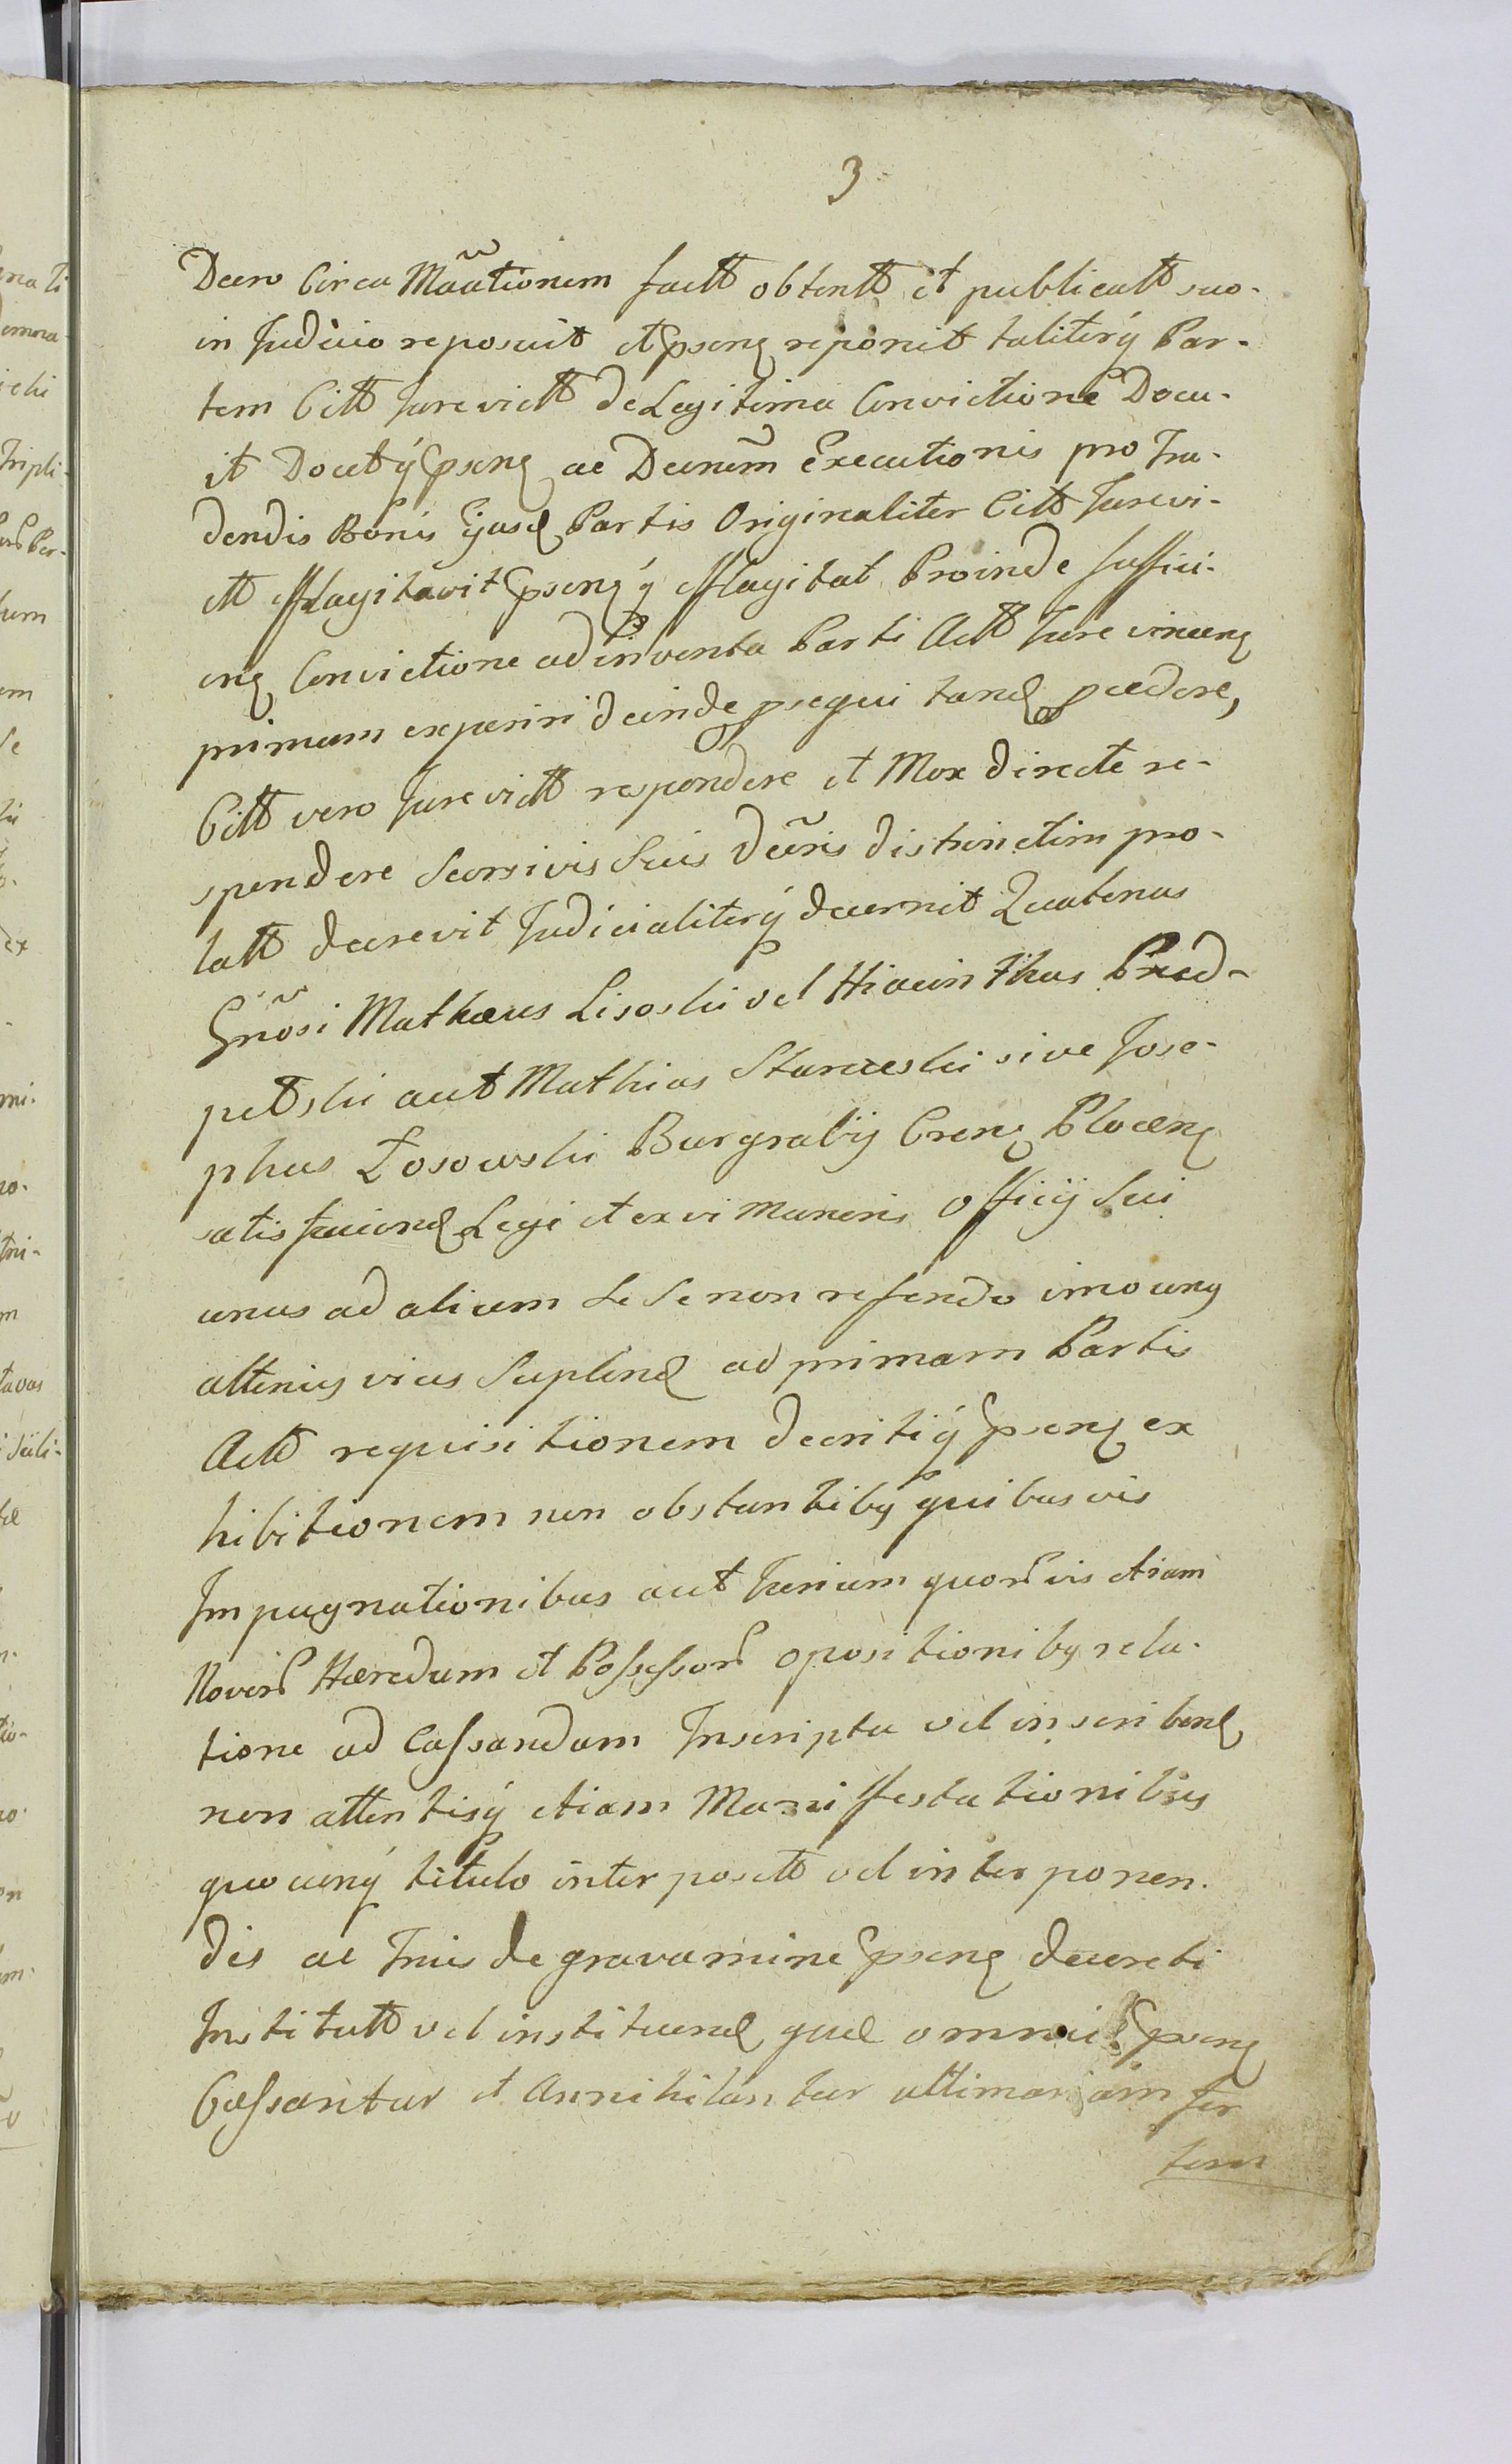 3
Decro Circa Mããtionem factt obtentt et publicatt suo-
in Judicio reposuit et psenq reponit taliterq Par-
tem Citt Jurevictt de Legitima Convictione Docu-
it Docetq psenq ac Decrum Executionis pro Tra-
dendis Bonis Ejusd Partis Originaliter Citt Jurevi-
ctt efflagitavit psenq q efflagitat Proinde suffici-
enq Convictione adinventa Parti Actt Jure vincenq
primum experiri deinde psequi tand pcedere,
Citt vero Jurevictt respondere et Mox directe re-
spondere Sucsivis Suis Decris distinctim pro-
latt decrevit Judicialiterq decernit Quatenus
Gnõsi Mathæus Lisoski vel Hiacinthus Przed-
petski aut Mathias Starczeski sive Jose-
phus Łosowski Burgrabij Crenq Plocenq
satisfaciend Legi et ex vi Muneris Officij Sui
unus ad alium se se non referendo imo unq
alterius vices Suplend ad primam Partis
Actt requisitionem decritiq psenq ex
hibitionem non obstantibq quibusvis
Impugnationibus aut Jurium quorvis etiam
Novir Hæredum et Possessor opositionibq rela-
tione ad Cassandum Inscripta vel inscribend
non attentisq etiam Maniffestationibus
quocunq titulo interpositt vel interponen-
dis ac Tnis de gravamine psenq decreti
Institutt vel instituend quæ omnia psenq
Cassantur et Annihilantur ultimariam for
tem